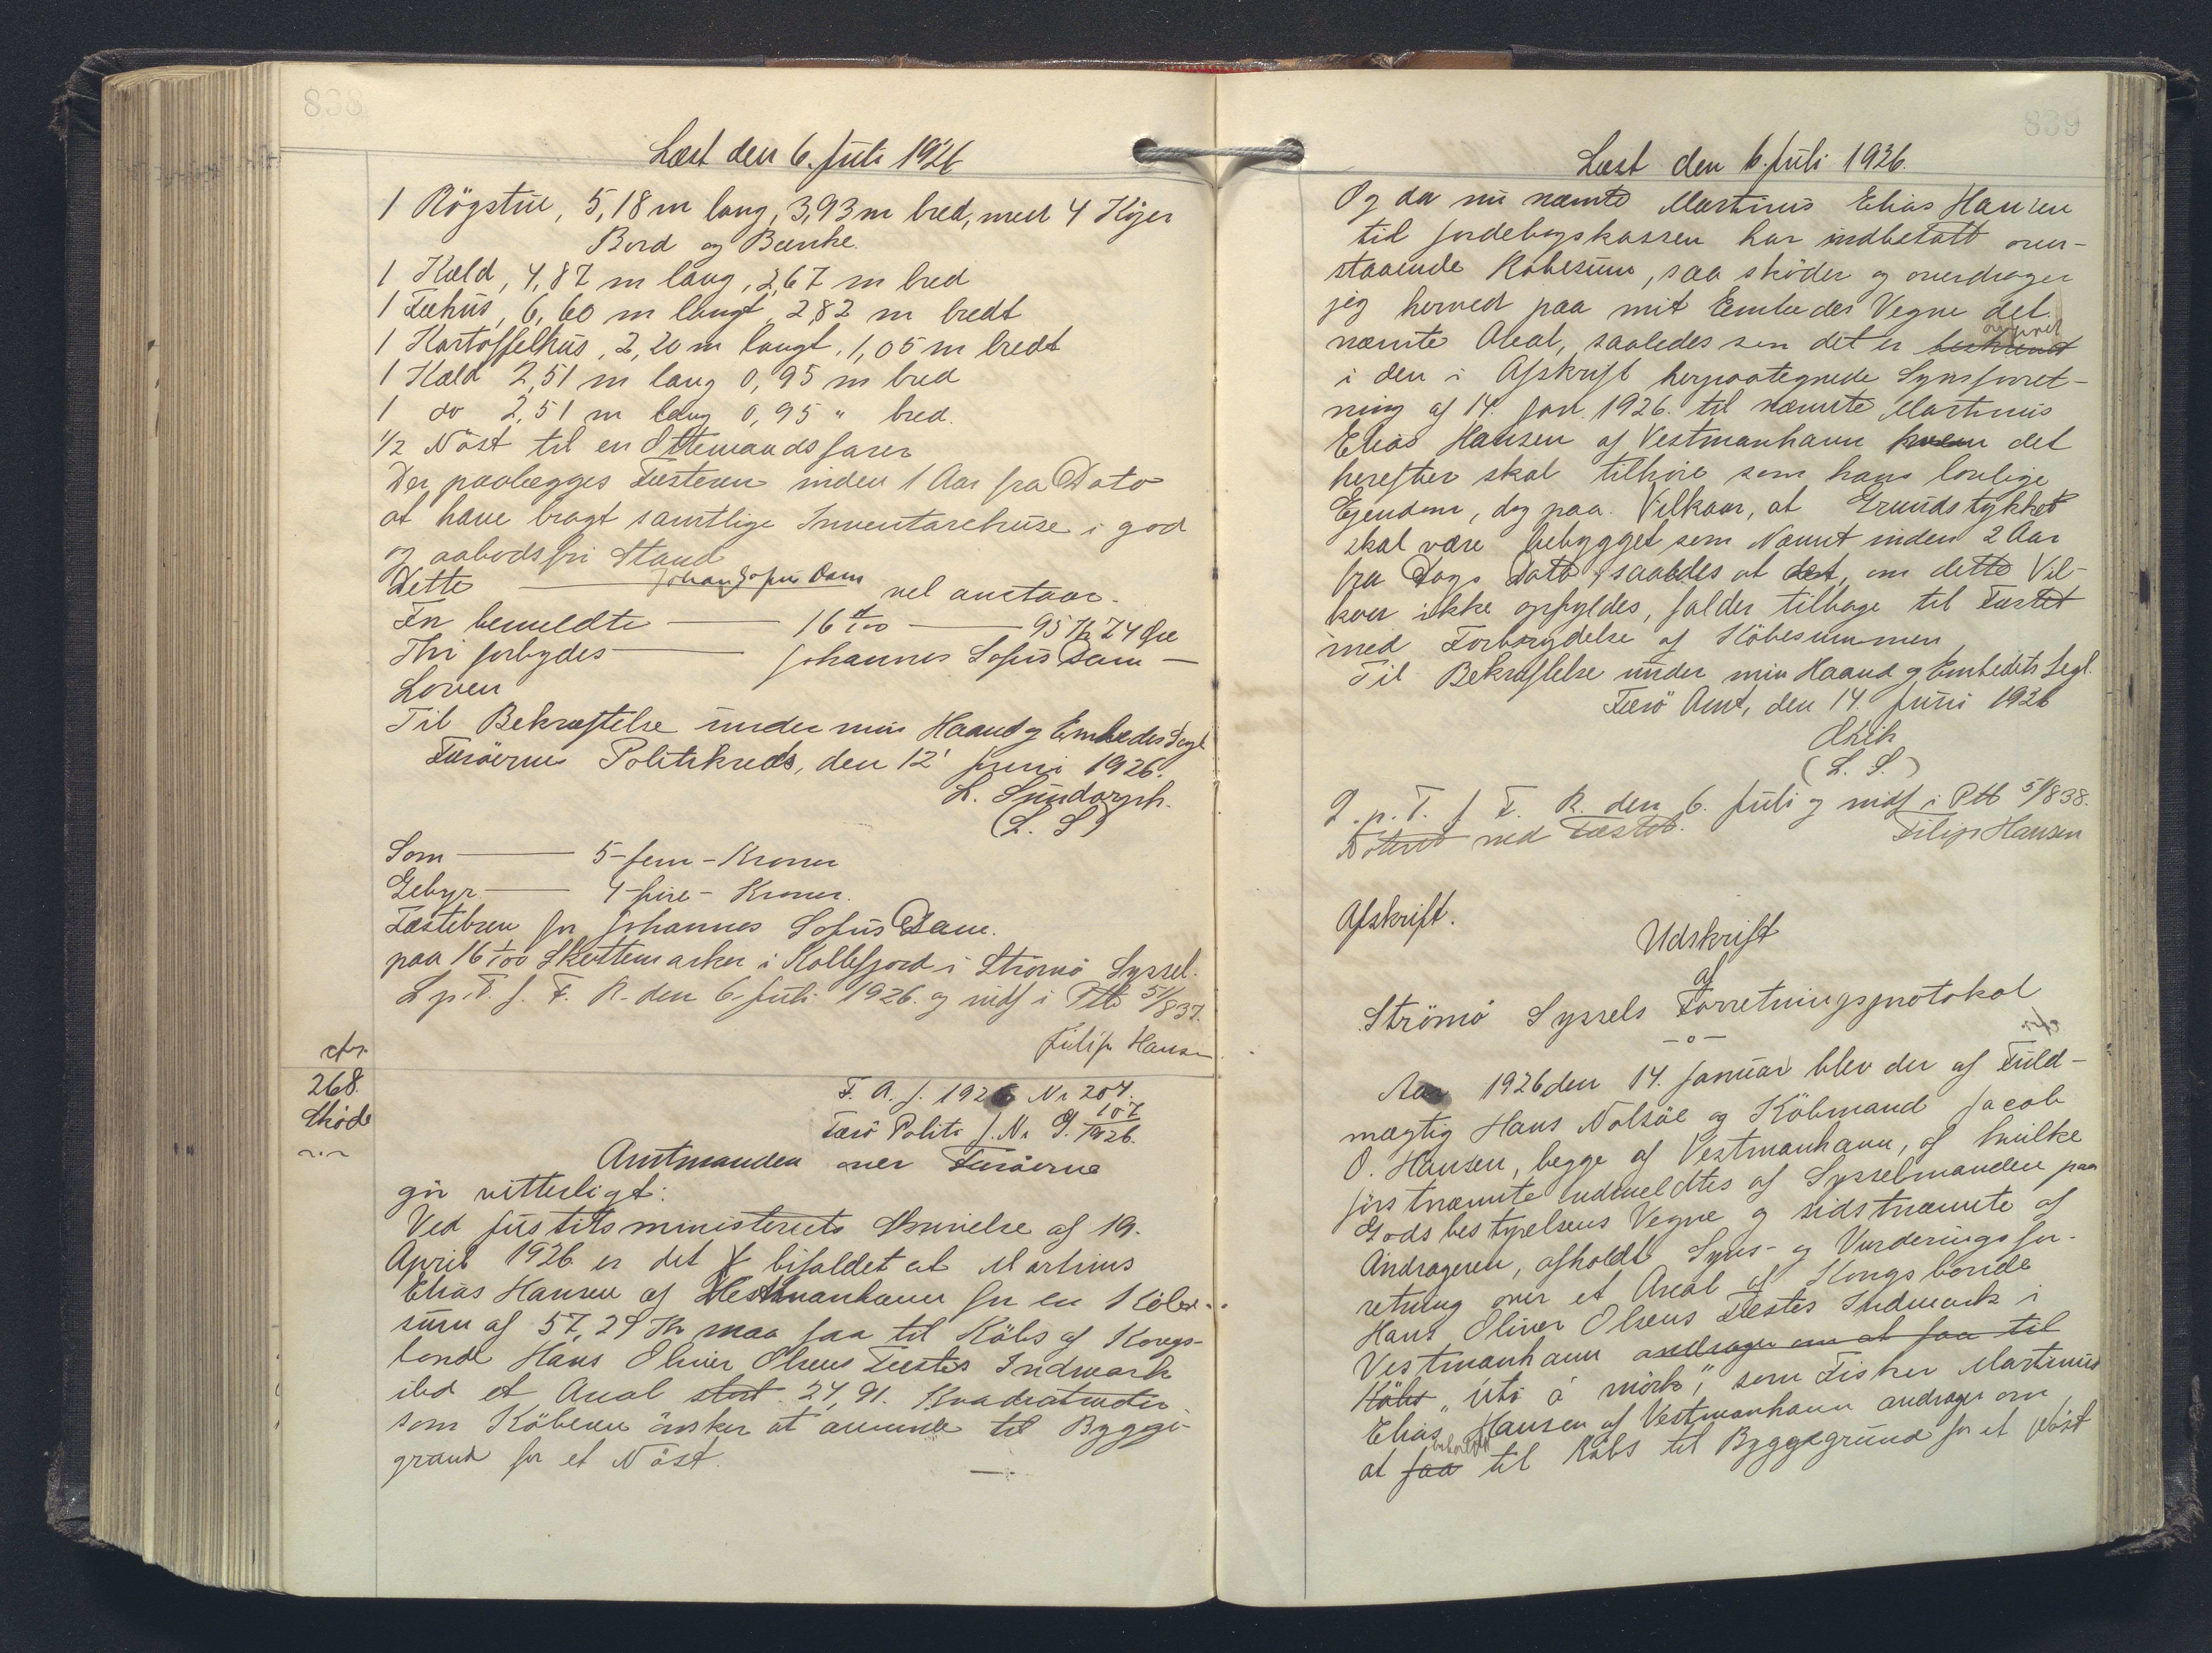 838
Læst den 6. Juli 1926
1 Rögstue, 5,18 m lang, 3,93 m bred, med 4 Köjer
Bord og Bænke.
1 Kæld, 4,87 m lang, 2,67 m bred
1 Fæhus, 6,60 m langt, 2,82 m bredt
1 Kartoffelhus, 2,20 m langt, 1,05 m bredt
1 Kæld 2,51 m lang 0,95 m bred
1 do 2,51 m lang 0,95 " bred.
1/2 Nöst til en Ottemandsfarer
Der paalægges Fæsteren inden 1 Aar fra Dato
at have bragt samtlige Inventarehuse i god
og aabodsfri Stand
Dette — Johan Sofus Dam vel anstaar.
Fn bemeldte — 16 4/100 — 95 Kr 74 Øre
Thi forbydes — Johannes Sofus Dam —
Loven
Til Bekræftelse under min Haand og Embedes Segl
Færöernes Politikreds, den 12' Juni 1926.
L. Sundorph.
(L. S)
Som — 5 - fem - Kroner
Gebyr — 4 - fire - Kroner.
Fæstebrev for Johannes Sofus Dam.
paa 16 4/100 Skattemarker i Kollefjord i Strömö Syssel.
L. p. T. f. F. R. den 6. Juli 1926. og indf i Ptb 51/837.
Filip Hansen
afsr.
268.
Skøde
F. A. J. 1926 Nr 204.
Færö Politi J. Nr G. 107/1926.
Amtmanden over Færöerne
gör vitterligt:
Ved Justitsministeriets Skrivelse af 19.
April 1926 er det bifaldet at Martinus
Elias Hansen af Vestmanhavn for en Købe-
sum af 57,29 Kr maa faa til Købs af Kongs-
bonde Hans Oliver Olsens Fæstes Indmark
ibd et Areal stort 24,91. Kvadratmeter
som Köberen önsker at anvende til Bygge-
grund for et Nöst.
839
Læst den 6. Juli 1926.
Og da nu nævnte Martinus Elias Hansen
til Jordebogskassen har indbetalt oven-
staaende Købesum, saa sköder og overdrager
jeg herved paa mit Embedes Vegne det
nævnte Areal, saaledes som det er beskrevet opgivet
i den i Afskrift herpaategnede Synsforret-
ning af 14. Jan 1926. til nævnte Martinus
Elias Hansen af Vestmanhavn hvem det
herefter skal tilhöre som hans lovlige
Ejendom, dog paa Vilkaar, at Grundstykket
skal være bebygget som Nævnt inden 2 Aar
fra Dags Dato, saaledes at det, om dette Vil-
kaar ikke opfyldes, falder tilbage til Fæstet
med Forbrydelse af Köbesummen
Til Bekræftelse under min Haand og Embedets Segl.
Færö Amt, den 14. Juni 1926
(L. S.)
L. p. T. f. F. R. den 6. Juli og indf i Ptb 51/838.
Noteret ved Fæstet. Filip Hansen
Afskrift.
Udskrift
af
Strömö Syssels Forretningsprotokol
-o-
Aar 1926 den 14. Januar blev der af Fuld-
mægtig Hans Nolsöe og Köbmand Jacob
O. Hansen, begge af Vestmanhavn, af hvilke
förstnævnte udmeldtes af Sysselmanden paa
Godsbestyrelsens Vegne og sidstnævnte af
Andrageren, afholdt Syns- og Vurderingsfor-
retning over et Areal af Kongsbonde
Hans Oliver Olsens Fæstes Indmark i
Vestmanhavn andrager om at faa til
Köbs "úti á mörk", som Fisker Martinus
Elias Hansen af Vestmanhavn andrager om
at faa til Köbs til Byggegrund for et Nöst